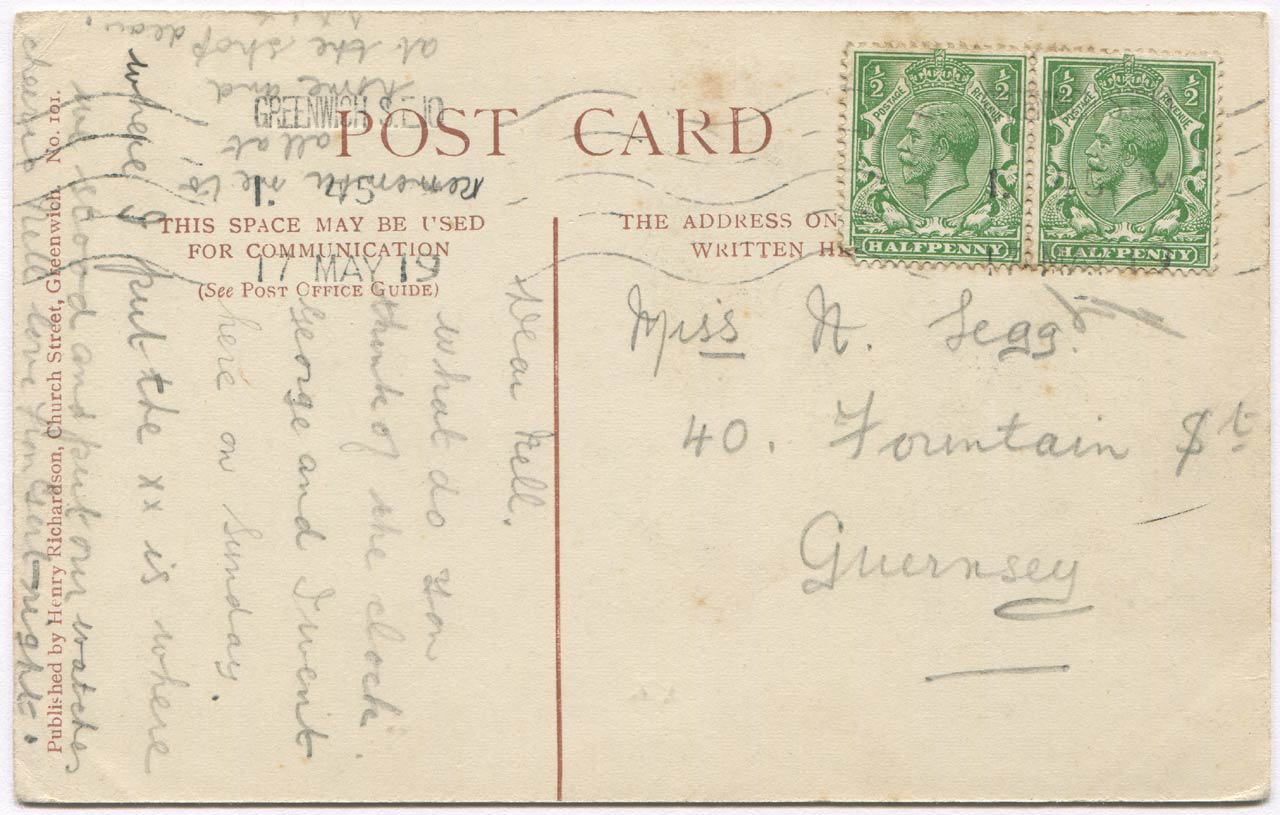 POST CARD
THIS SPACE MAY BE USED
FOR COMMUNICATION
(See Post Office Guide)
THE ADDRESS ON
WRITTEN HE
Published by Henry Richardson, Church Street, Greenwich. No. 101.
GREENWICH S.E.10
17 MAY 19
½ ½
POSTAGE REVENUE
HALFPENNY
½ ½
POSTAGE REVENUE
HALFPENNY
Miss N. Legg.
40. Fountain St
Guernsey
Dear Nell.
what do you
think of the clock.
George and I went
here on Sunday.
where I put the xx is where
we stood and put our watches
cheerio Nell love from
right.
remember me to
all at
home and
at the shop
dear.